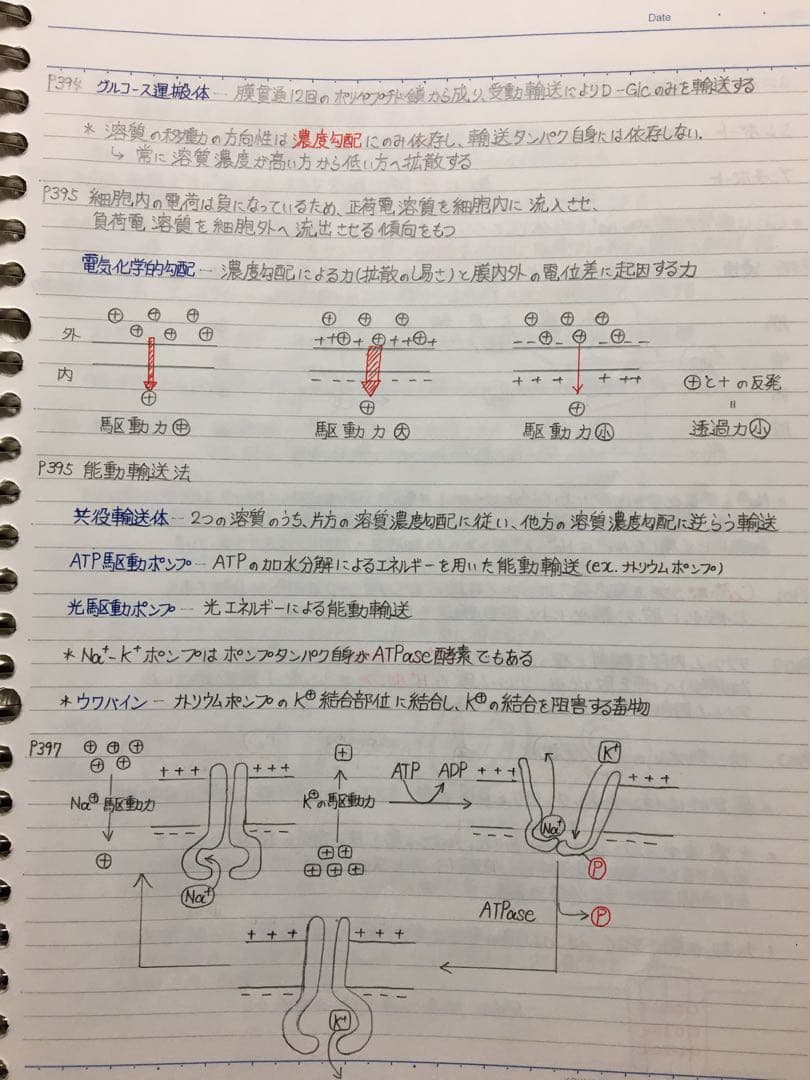 Date
P394 グルコース運搬体 ― 膜貫通12回のポリペプチド鎖から成り、受動輸送によりD-Glcのみを輸送する
* 溶質の移動の方向性は濃度勾配にのみ依存し、輸送タンパク自身には依存しない.
↳ 常に溶質濃度が高い方から低い方へ拡散する
P395 細胞内の電荷は負になっているため、正荷電溶質を細胞内に流入させ、
負荷電溶質を細胞外へ流出させる傾向をもつ
電気化学的勾配 ― 濃度勾配による力(拡散のし易さ)と膜内外の電位差に起因する力
⊕ ⊕ ⊕ ⊕ ⊕ ⊕ ⊕ ⊕ ⊕
外 ⊕ ⊕ ⊕ ++⊕+ ⊕ ++⊕+ _ _⊕_ ⊕ _⊕_ _
内 _ _ _ _ _ _ _ + + + + ++ ⊕と+の反発
⊕ ⊕ ⊕ =
駆動力㊥ 駆動力㊛ 駆動力㊙ 透過力㊙
P395 能動輸送法
共役輸送体 ― 2つの溶質のうち、片方の溶質濃度勾配に従い、他方の溶質濃度勾配に逆らう輸送
ATP駆動ポンプ ― ATPの加水分解によるエネルギーを用いた能動輸送(ex.ナトリウムポンプ)
光駆動ポンプ ― 光エネルギーによる能動輸送
* Na⁺-K⁺ポンプはポンプタンパク自身がATPase酵素でもある
* ウワバイン ― ナトリウムポンプのK⊕結合部位に結合し、K⊕の結合を阻害する毒物
P397 ⊕ ⊕ ⊕ ⊕ ⊕
+ + + + + +
Na⊕駆動力
⊕
Na⁺
+
K⊕の駆動力
+ + + + + +
ATP ADP
+ + + K⁺ + + +
Na⁺
P
ATPase P
+ + + + + +
K⁺